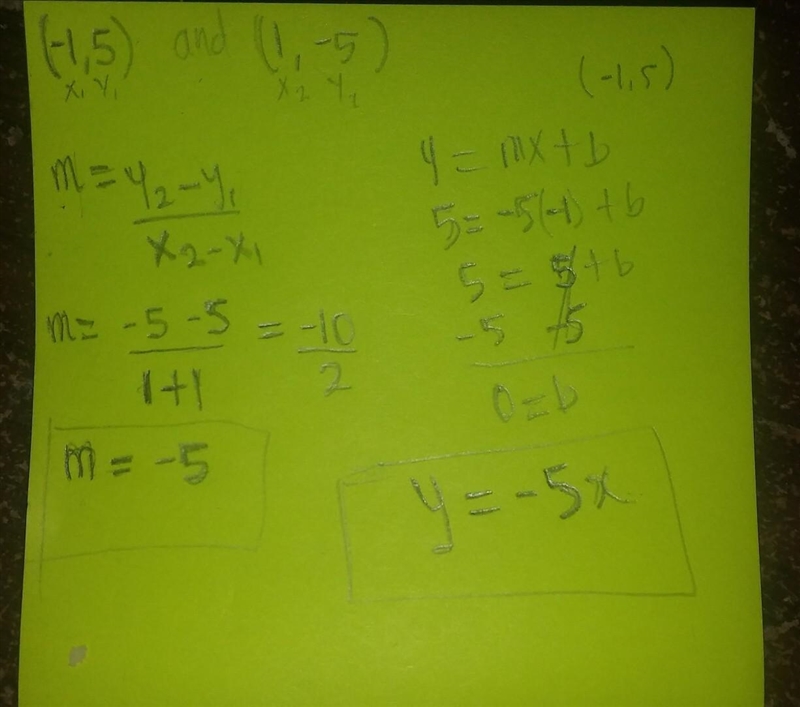 (-1,5) and (1,-5)
x₁ y₁ x₂ y₂
m = y₂-y₁
x₂-x₁
m = -5-5 = -10
1+1 2
m = -5
(-1,5)
y = mx+b
5 = -5(-1)+b
5 = 5+b
-5 -5
0=b
y = -5x